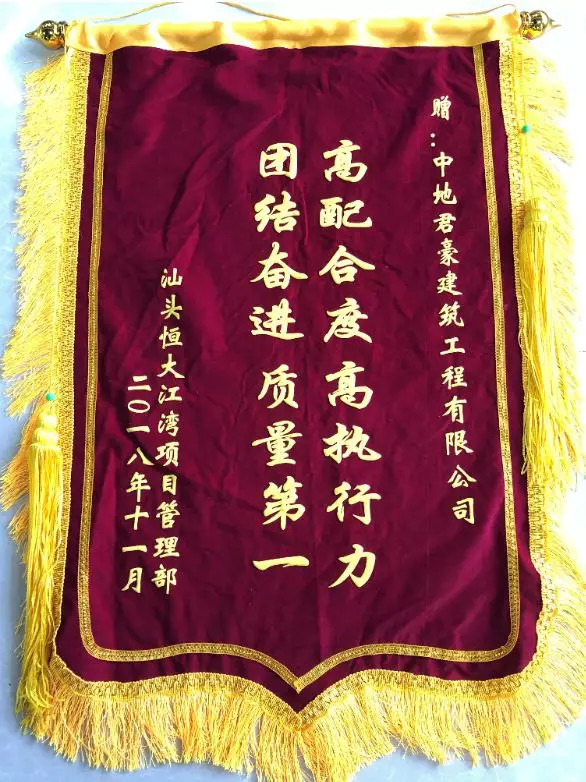 赠：中地君豪建筑工程有限公司
高配合度高执行力
团结奋进 质量第一
汕头恒大江湾项目管理部
二〇一八年十一月